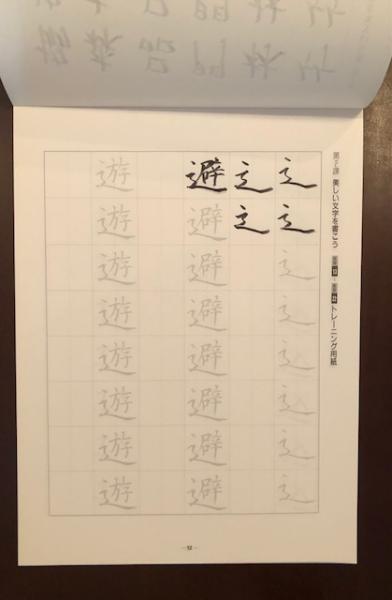 美しい文字を書こう トレーニング用紙
辶辶辶辶辶辶辶辶
辶辶
避避避避避避避避
遊遊遊遊遊遊遊遊
—12—